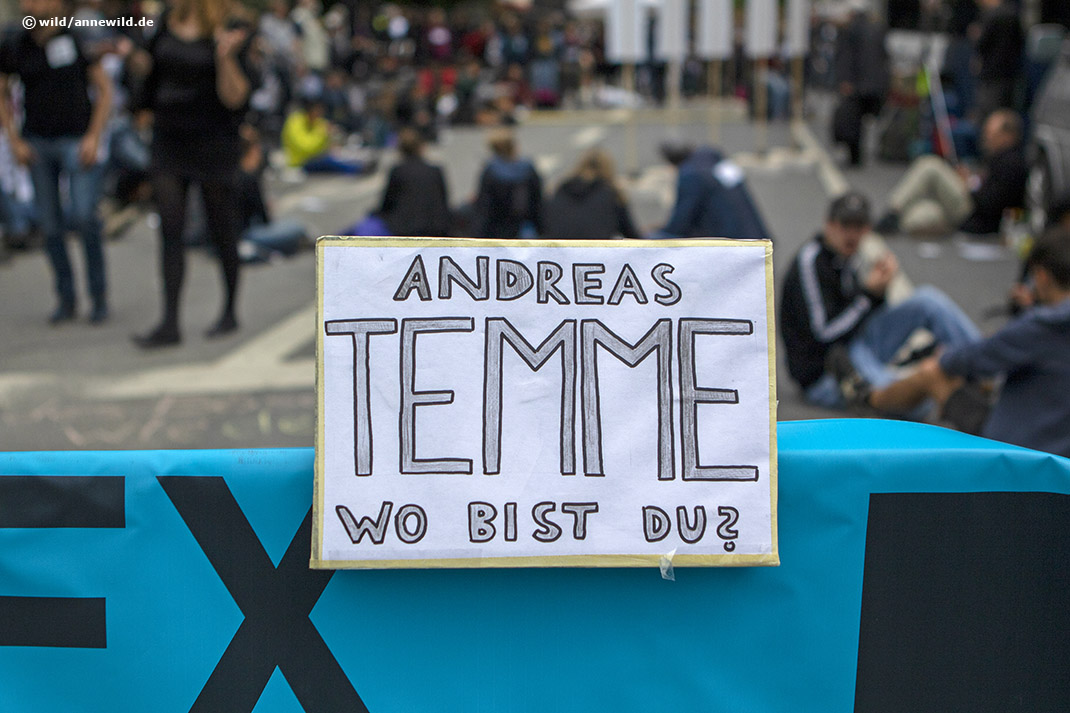 © wild/annewild.de
ANDREAS
TEMME
WO BIST DU?
EX